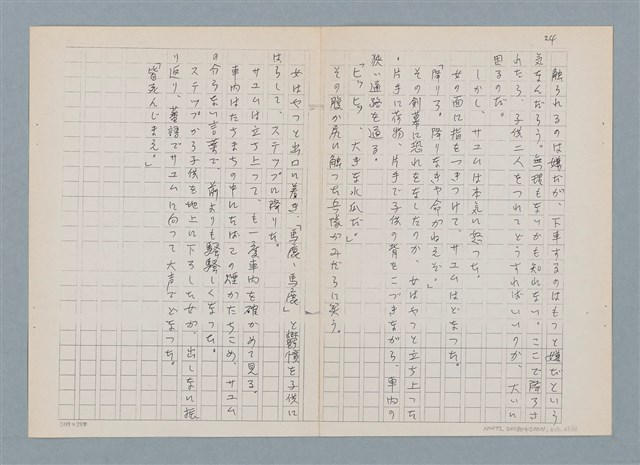 24
触られるのは嫌だが、下車するのはもっと嫌だという
気なんだろう。無理もないかも知れない。ここで降ろさ
れたら、子供二人をつれてどうすればいいのか、大いに
困るのだ。
しかし、サユムは本気に怒った。
女の面に指をつきつけて、サユムはどなった。
「降りろ。降りなきや命がねえぞ。」
その剣幕に恐れをなしたのか、女はやっと立ち上った
。片手に荷物、片手で子供の背をこづきながら、車内の
狭い通路を通る。
「ヒッヒッ、大きな水瓜だ。」
その腹か尻に触った兵隊がみだらに笑う。
女はやっと出口に着き、「馬鹿、馬鹿」と鬱憤を子供に
はらして、ステップに降りた。
サユムは立ち上って、も一度車内を確かめて見る。
車内はたちまちの中にたばこの煙がたちこめ、サユム
の分らない言葉で、前よりも騒騒しくなった。
ステップから子供を地上に下ろした女が、出しぬけに振
り返り、蕃語でサユムに向って大声でどなった。
「皆死んじまえ。」